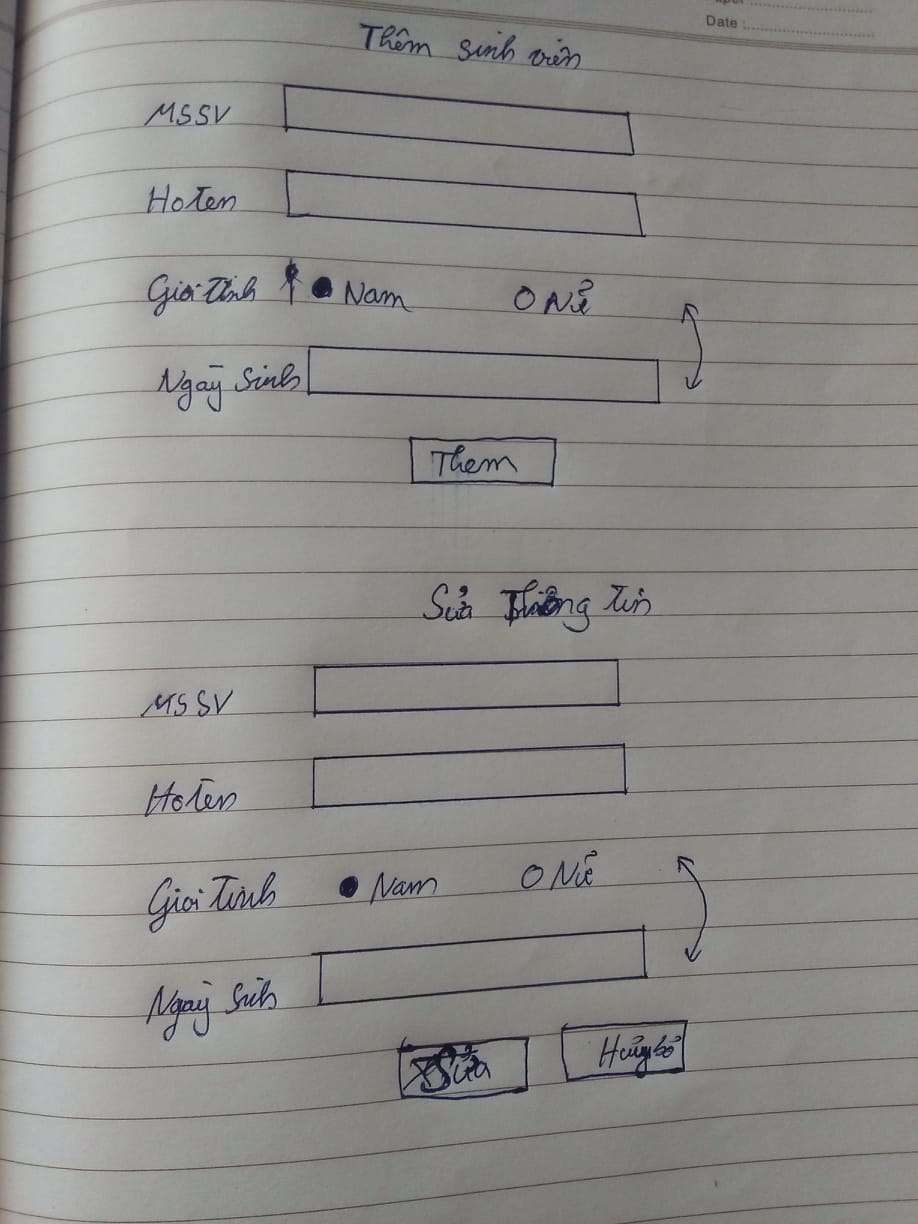 Date :
Thêm sinh viên
MSSV
Ho Ten
Giơi Tính Nam Nữ
Ngày sinh
Them
Sửa Thông tin
MSSV
Ho Tên
Giơi Tính Nam Nữ
Ngày Sinh
Sửa Hủy bỏ